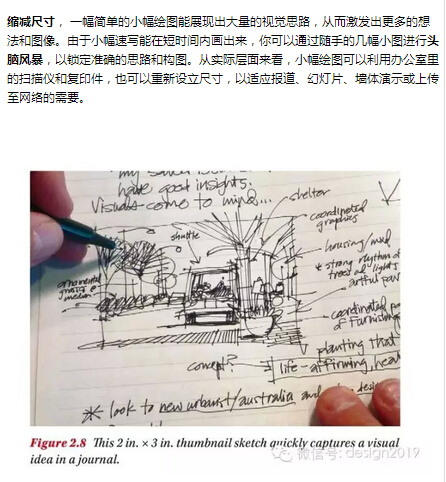 缩减尺寸， 一幅简单的小幅绘图能展现出大量的视觉思路，从而激发出更多的想
法和图像。由于小幅速写能在短时间内画出来，你可以通过随手的几幅小图进行头
脑风暴，以锁定准确的思路和构图。从实际层面来看，小幅绘图可以利用办公室里
的扫描仪和复印件，也可以重新设立尺寸，以适应报道、幻灯片、墙体演示或上传
至网络的需要。
have good insights.
Visuals come to mind...
shelter
coordinated
graphics
shuttle
housing/mixed
* strong rhythm of
trees & lights
ornamental
median
coordinated
of furnishings
planting that
concept?
life-affirming, heal
* look to new urbanist/australia and
Figure 2.8 This 2 in. × 3 in. thumbnail sketch quickly captures a visual
idea in a journal.
微信号: design2019